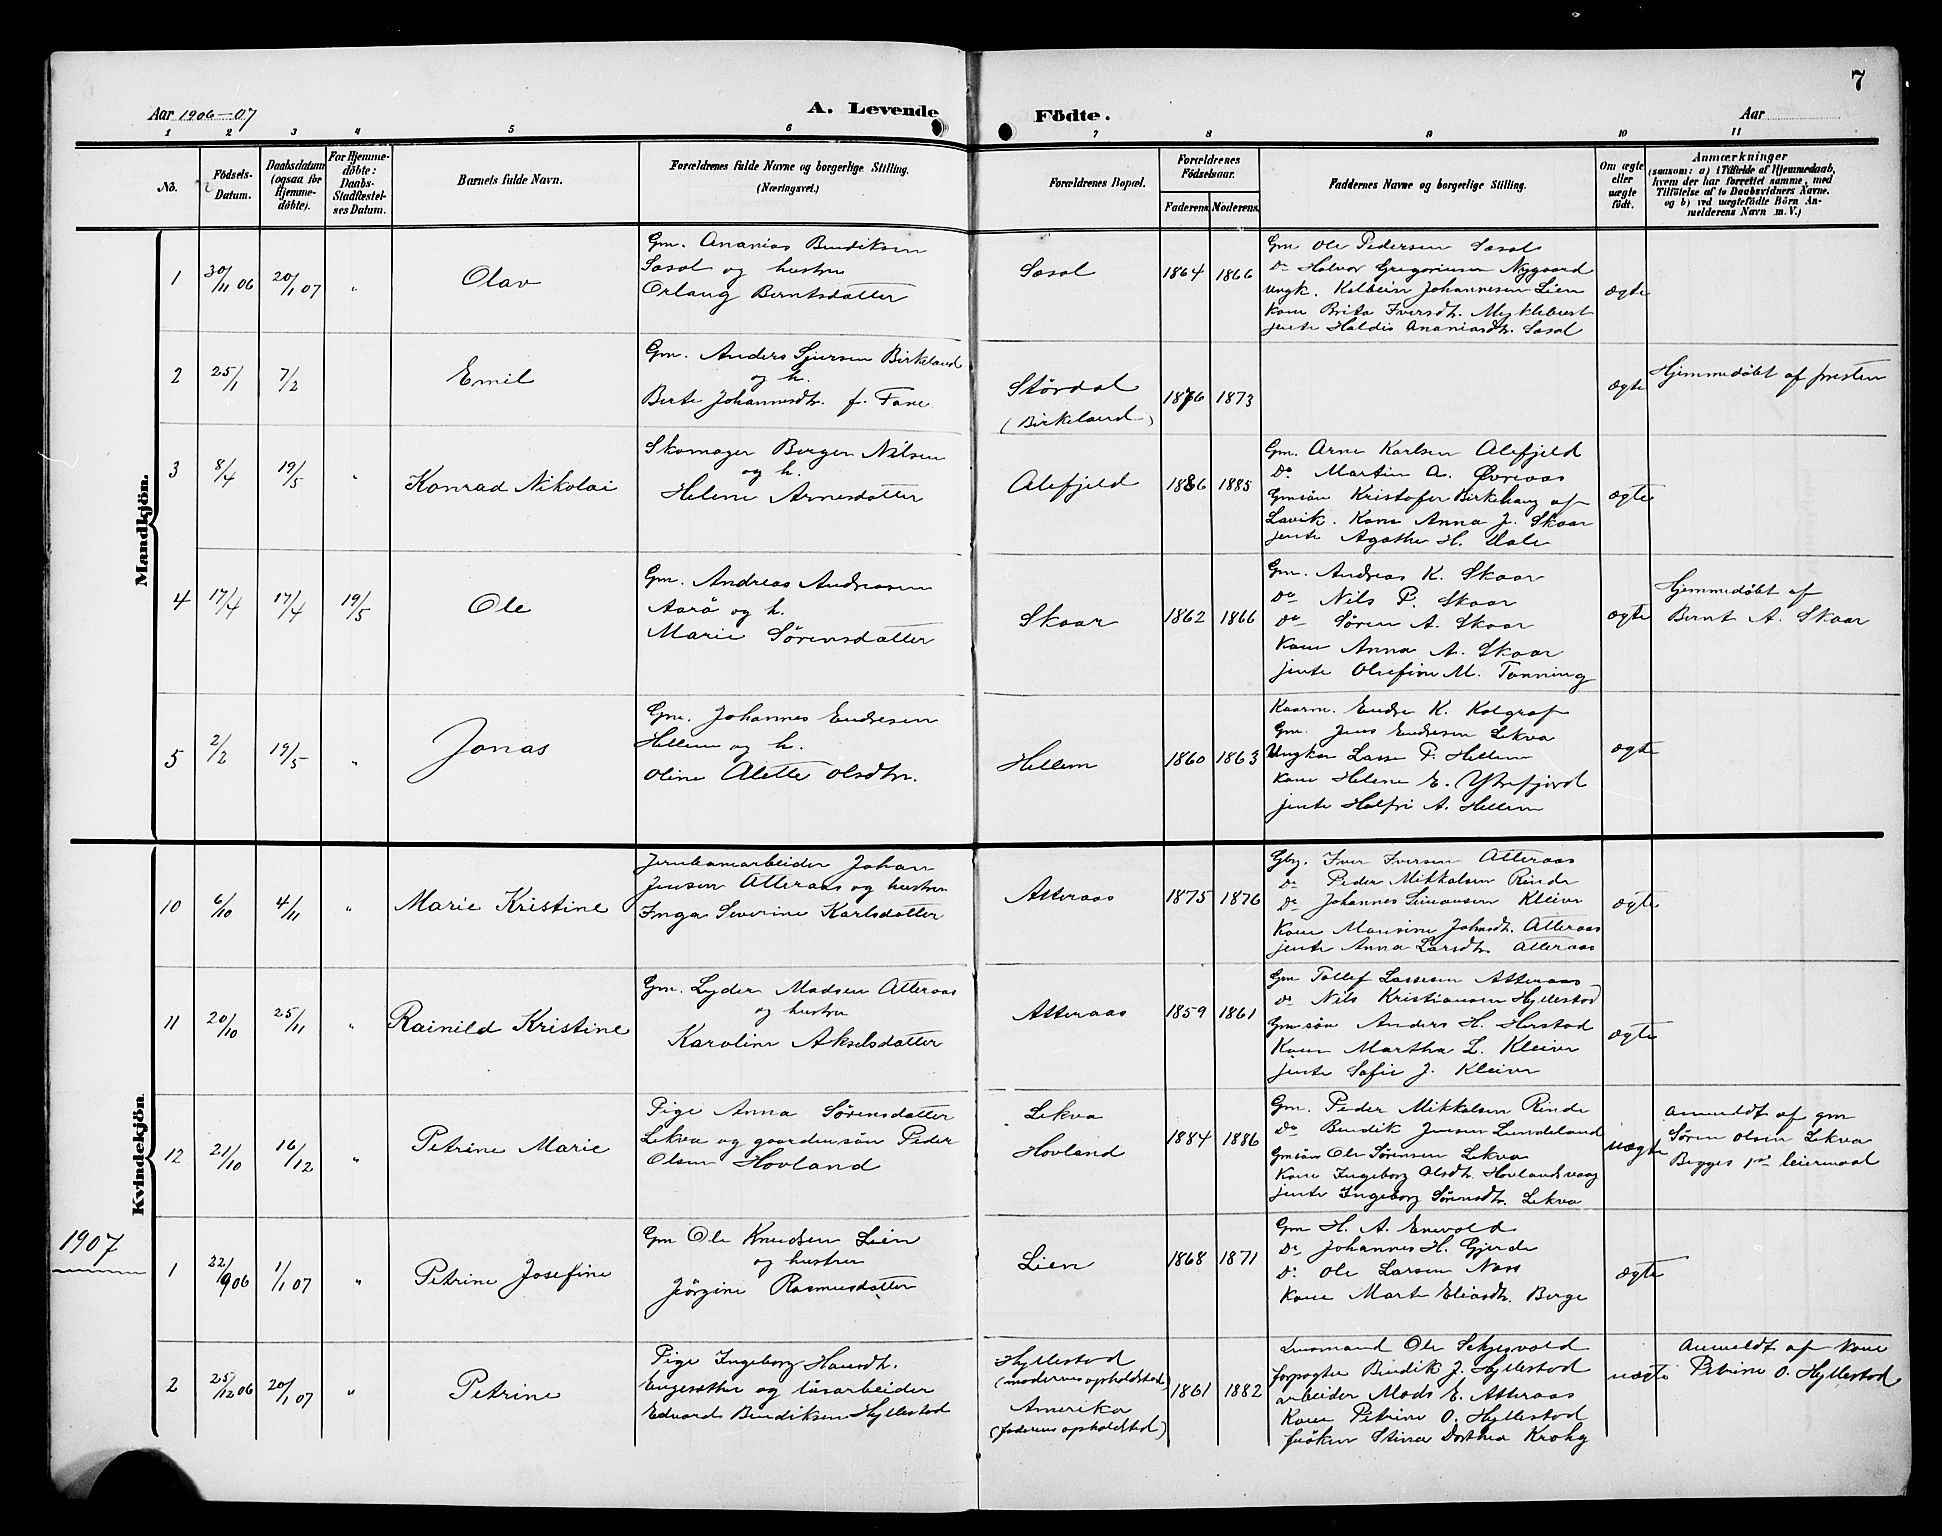 7
Aar 1906-07
A. Levende
Födte.
Aar
1 2 3 4 5 6 7 8 9 10 11
No.
Födsels-Datum.
Daabsdatum (ogsaa for Hjemme-döbte).
For Hjemme-döbte: Daabs-Stadfæstel-ses Datum.
Barnets fulde Navn.
Forældrenes fulde Navne og borgerlige Stilling. (Næringsvei.)
Forældrenes Bopæl.
Forældrenes Födselsaar.
Faderens. Moderens.
Faddernes Navne og borgerlige Stilling.
Om ægte eller uægte født.
Anmærkninger
(saasom: a) i Tilfælde af Hjemmedaab, hvem der har forrettet samme, med Tilföielse af to Daabsvidners Navne, og b) ved uægtefödte Börn An-melderens Navn m. V.)
Mandkjön.
1
30/11 06
20/1 07
"
Olav
Gm. Ananias Bendiksen
Sæsol og hustru
Orlaug Berntsdatter
Sæsol
1864 1866
Gm Ole Pedersen Sæsol
Do Halvor Gregoriusen Nygaard
Ungk. Kolbein Johannesen Lien
Kone Brita Iversdtr. Myklebust
jente Haldis Ananiasdtr. Sæsol
ægte
2
25/1
7/2
Emil
Gm. Anders Sjursen Birkeland
og h.
Berte Johannesdtr. f. Fane
Stördal
(Birkeland)
1876 1873
ægte
Hjemmedøbt af presten
3
8/4
19/5
"
Konrad Nikolai
Skomager Berger Nilsen
og h.
Helene Arnesdatter
Alefjeld
1886 1885
Gm. Arne Karlsen Alefjeld
Do Martin A. Øvreaas
Gmsön Kristofer Birkehaug af
Lavik. Kone Anna J. Skaar
jente Agathe H. Vale
ægte
4
17/4
17/4
19/5
Ole
Gm. Andreas Andreasen
Aarö og h.
Marie Sörensdatter
Skaar
1862 1866
Gm. Andreas K. Skaar
Do Nils P. Skaar
Do Sören A. Skaar
Kone Anna A. Skaar
jente Olrefine M. Tonning
ægte
Hjemmedøbt af
Bernt A. Skaar
5
2/2
19/5
"
Jonas
Gm. Johannes Endresen
Hellem og h.
Oline Alette Olsdtr.
Hellem
1860 1863
Kaarm. Endre K. Kolgrof
Gm. Jens Endresen Lekva
Ungkar Lasse P. Hellem
Kone Helene E. Ytrefjord
jente Halfri A. Hellem
ægte
Kvindekjön.
10
6/10
4/11
"
Marie Kristine
Jernbanearbeider Johan
Jensen Atteraas og hustru
Inga Severine Karlsdatter
Atteraas
1875 1876
Gbr. Iver Iversen Atteraas
Do Peder Mikkalsen Rinde
Do Johannes Simonsen Kleiva
Kone Mansine Johnsdtr. Atteraas
jente Anna Larsdtr. Atteraas
ægte
11
20/10
25/11
"
Rainild Kristine
Gm. Lyder Madsen Atteraas
og hustru
Karoline Akselsdatter
Atteraas
1859 1861
Gm Tollef Lassesen Atteraas
Do Nils Kristiansen Hyllestad
Gmsön Anders H. Herstad
Kone Martha L. Kleiva
jente Sofie J. Kleiva
ægte
12
21/10
16/12
"
Petrine Marie
Pige Anna Sörensdatter
Lekva og gaardensön Peder
Olsen Hovland
Lekva
Hovland
1884 1886
Gm. Peder Mikkalsen Rinde
Do Bendik Jensen Lundeland
Gmsön Ole Sörensen Lekva
Kone Ingeborg Olsdtr. Hovlandsvaag
jente Ingeborg Sörensdtr. Lekva
uægte
Anmeldt af gm
Sören Olsen Lekva
Begges 1ste leiermaal
1907
1
22/9 06
1/1 07
"
Petrine Josefine
Gm Ole Knudsen Lien
og hustru
Jörgine Rasmusdatter
Lien
1868 1871
Gm H. A. Enevold
Do Johannes H. Gjerde
Do Ole Larsen Ness
Kone Marte Eliasdtr. Berge
ægte
2
25/12 06
20/1 07
"
Petrine
Pige Ingeborg Hansdtr.
Engesæther og lösarbeider
Edvard Bendiksen Hyllestad
Hyllestad
(moderens opholdsted)
Amerika
(faderens opholdsted)
1861 1882
Lensmand Ole Sekjesvold
forpagter Bendik J. Hyllestad
arbeider Mads E. Atteraas
Kone Petrine O. Hyllestad
fröken Stina Dorthea Krohg
uægte
Anmeldt af kone
Petrine O. Hyllestad